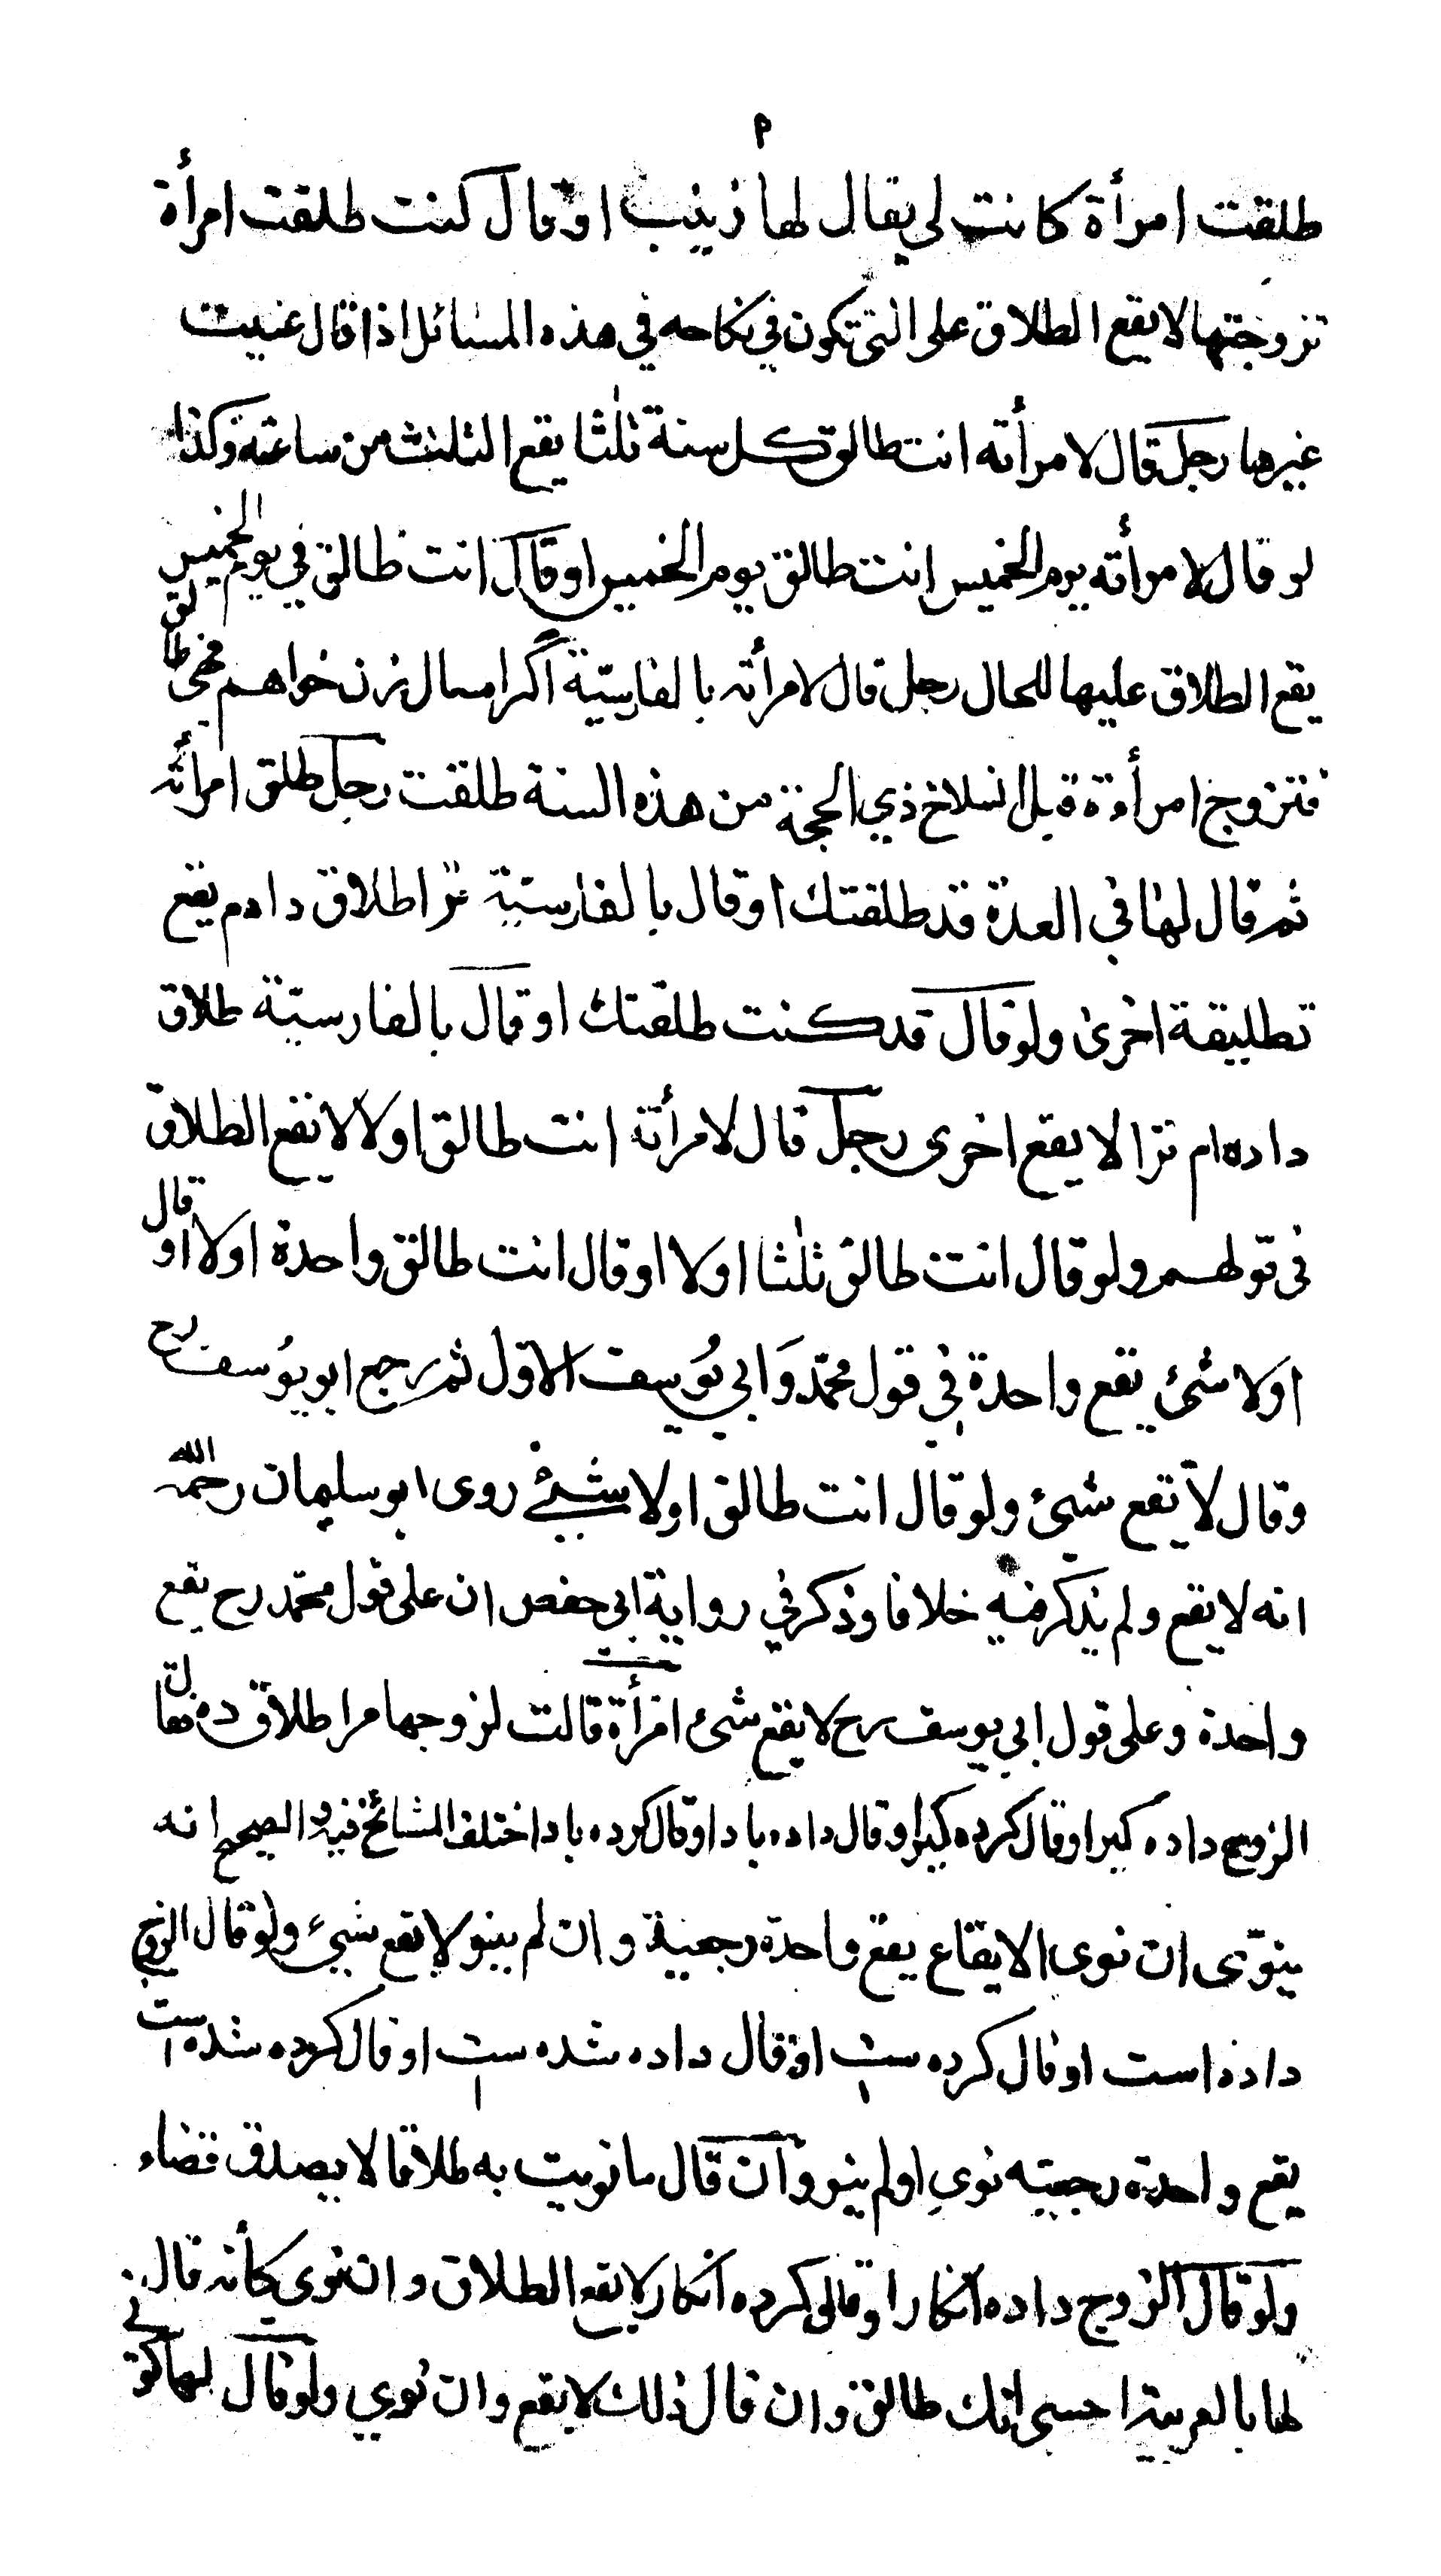 ٩
طلقت امرأة كانت لي يقال لها زينب او قال كنت طلقت امرأة
تزوجتها لا يقع الطلاق على التي تكون في نكاحه في هذه المسائل اذا قال عنيت
غيرها رجل قال لامرأته انت طالق كل سنة ثلثا يقع الثلث من ساعته وكذا
لو قال لامرأته يوم الخميس انت طالق يوم الخميس او قال انت طالق في يوم الخميس
يقع الطلاق عليها للحال رجل قال لامرأته بالفارسيّة اگر امسال زن خواهم فهي طالق
فتزوج امرأة قبل انسلاخ ذي الحجة من هذه السنة طلقت رجل طلق امرأته
ثم قال لها في العدة قد طلقتك او قال بالفارسيّة ترا طلاق دادم يقع
تطليقة اخرى ولو قال قد كنت طلقتك او قال بالفارسيّة طلاق
داده ام ترا لا يقع اخرى رجل قال لامرأته انت طالق او لا لا يقع الطلاق
في قولهم ولو قال انت طالق ثلثا او لا او قال انت طالق واحدة او لا او قال
او لا شئ يقع واحدة في قول محمّد وَابي يُوسف الاول ثم رجع ابو يوُسف رح
وقال لا يقع شئ ولو قال انت طالق او لا شئ روى ابو سليمان رحمه الله
انه لا يقع ولم يذكر فيه خلافا وذكر في رواية ابي حفص ان على قول محمّد رح يقع
واحدة وعلى قول ابي يوسف رح لا يقع شئ امرأة قالت لزوجها مرا طلاق ده فقال
الزوج داده كير او قال كرده كير او قال داده باد او قال كرده باد اختلف المشائخ فيه والصحيح انه
ينوّى ان نوى الايقاع يقع واحدة رجعية وان لم ينو لا يقع شئ ولو قال الزوج
داده است او قال كرده است او قال داده شده است او قال كرده شده است
يقع واحدة رجعيه نوى او لم ينو وان قال ما نويت به طلاقا لا يصدق قضاء
ولو قال الزوج داده انكار او قال كرده انكار لا يقع الطلاق وان نوى كأنه قال
لها بالعربية احسبي انك طالق وان قال ذلك لا يقع وان نوى ولو قال لها كوني